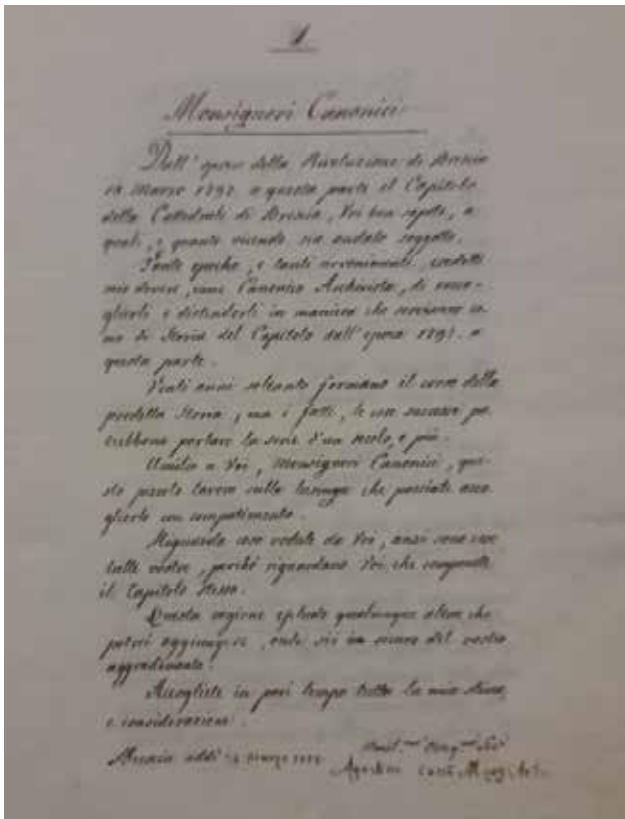 1
Monsignori Canonici
Dall' epoca della Rivoluzione di Brescia
18 Marzo 1797 a questa parte il Capitolo
della Cattedrale di Brescia, Voi ben sapete, a
quali, e quante vicende sia andato soggetto.
Tante epoche, e tanti avvenimenti, credetti
mio dovere, come Canonico Archivista, di racco-
glierli e distenderli in maniera che servissero co-
me di Storia del Capitolo dall' epoca 1797. a
questa parte.
Venti anni soltanto formano il corso della
predetta Storia, ma i fatti, le cose successe po-
trebbono portare la serie d'un secolo, e più.
Umilio a Voi, Monsignori Canonici, que-
sto piccolo lavoro sulla lusinga che possiate acco-
glierlo con compatimento.
Riguarda cose vedute da Voi, anzi sono cose
tutte vostre, perché riguardano Voi, che componete
il Capitolo stesso.
Questa ragione esclude qualunque altra che
potrei aggiungere, onde sii sicuro del vostro
aggradimento.
Accogliete in pari tempo tutta la mia stima,
e considerazione.
Brescia addì Marzo
Agostino